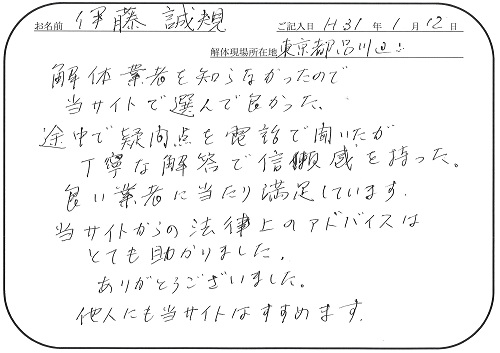 お名前 伊藤 誠規 ご記入日 H31年1月12日
解体現場所在地 東京都品川区
解体業者を知らなかったので
当サイトで選んで良かった、
途中で疑問点を電話で聞いたが
丁寧な解答で信頼感を持った。
良い業者に当たり満足しています.
当サイトからの法律上のアドバイスは
とても助かりました.
ありがとうございました。
他人にも当サイトはすすめます.